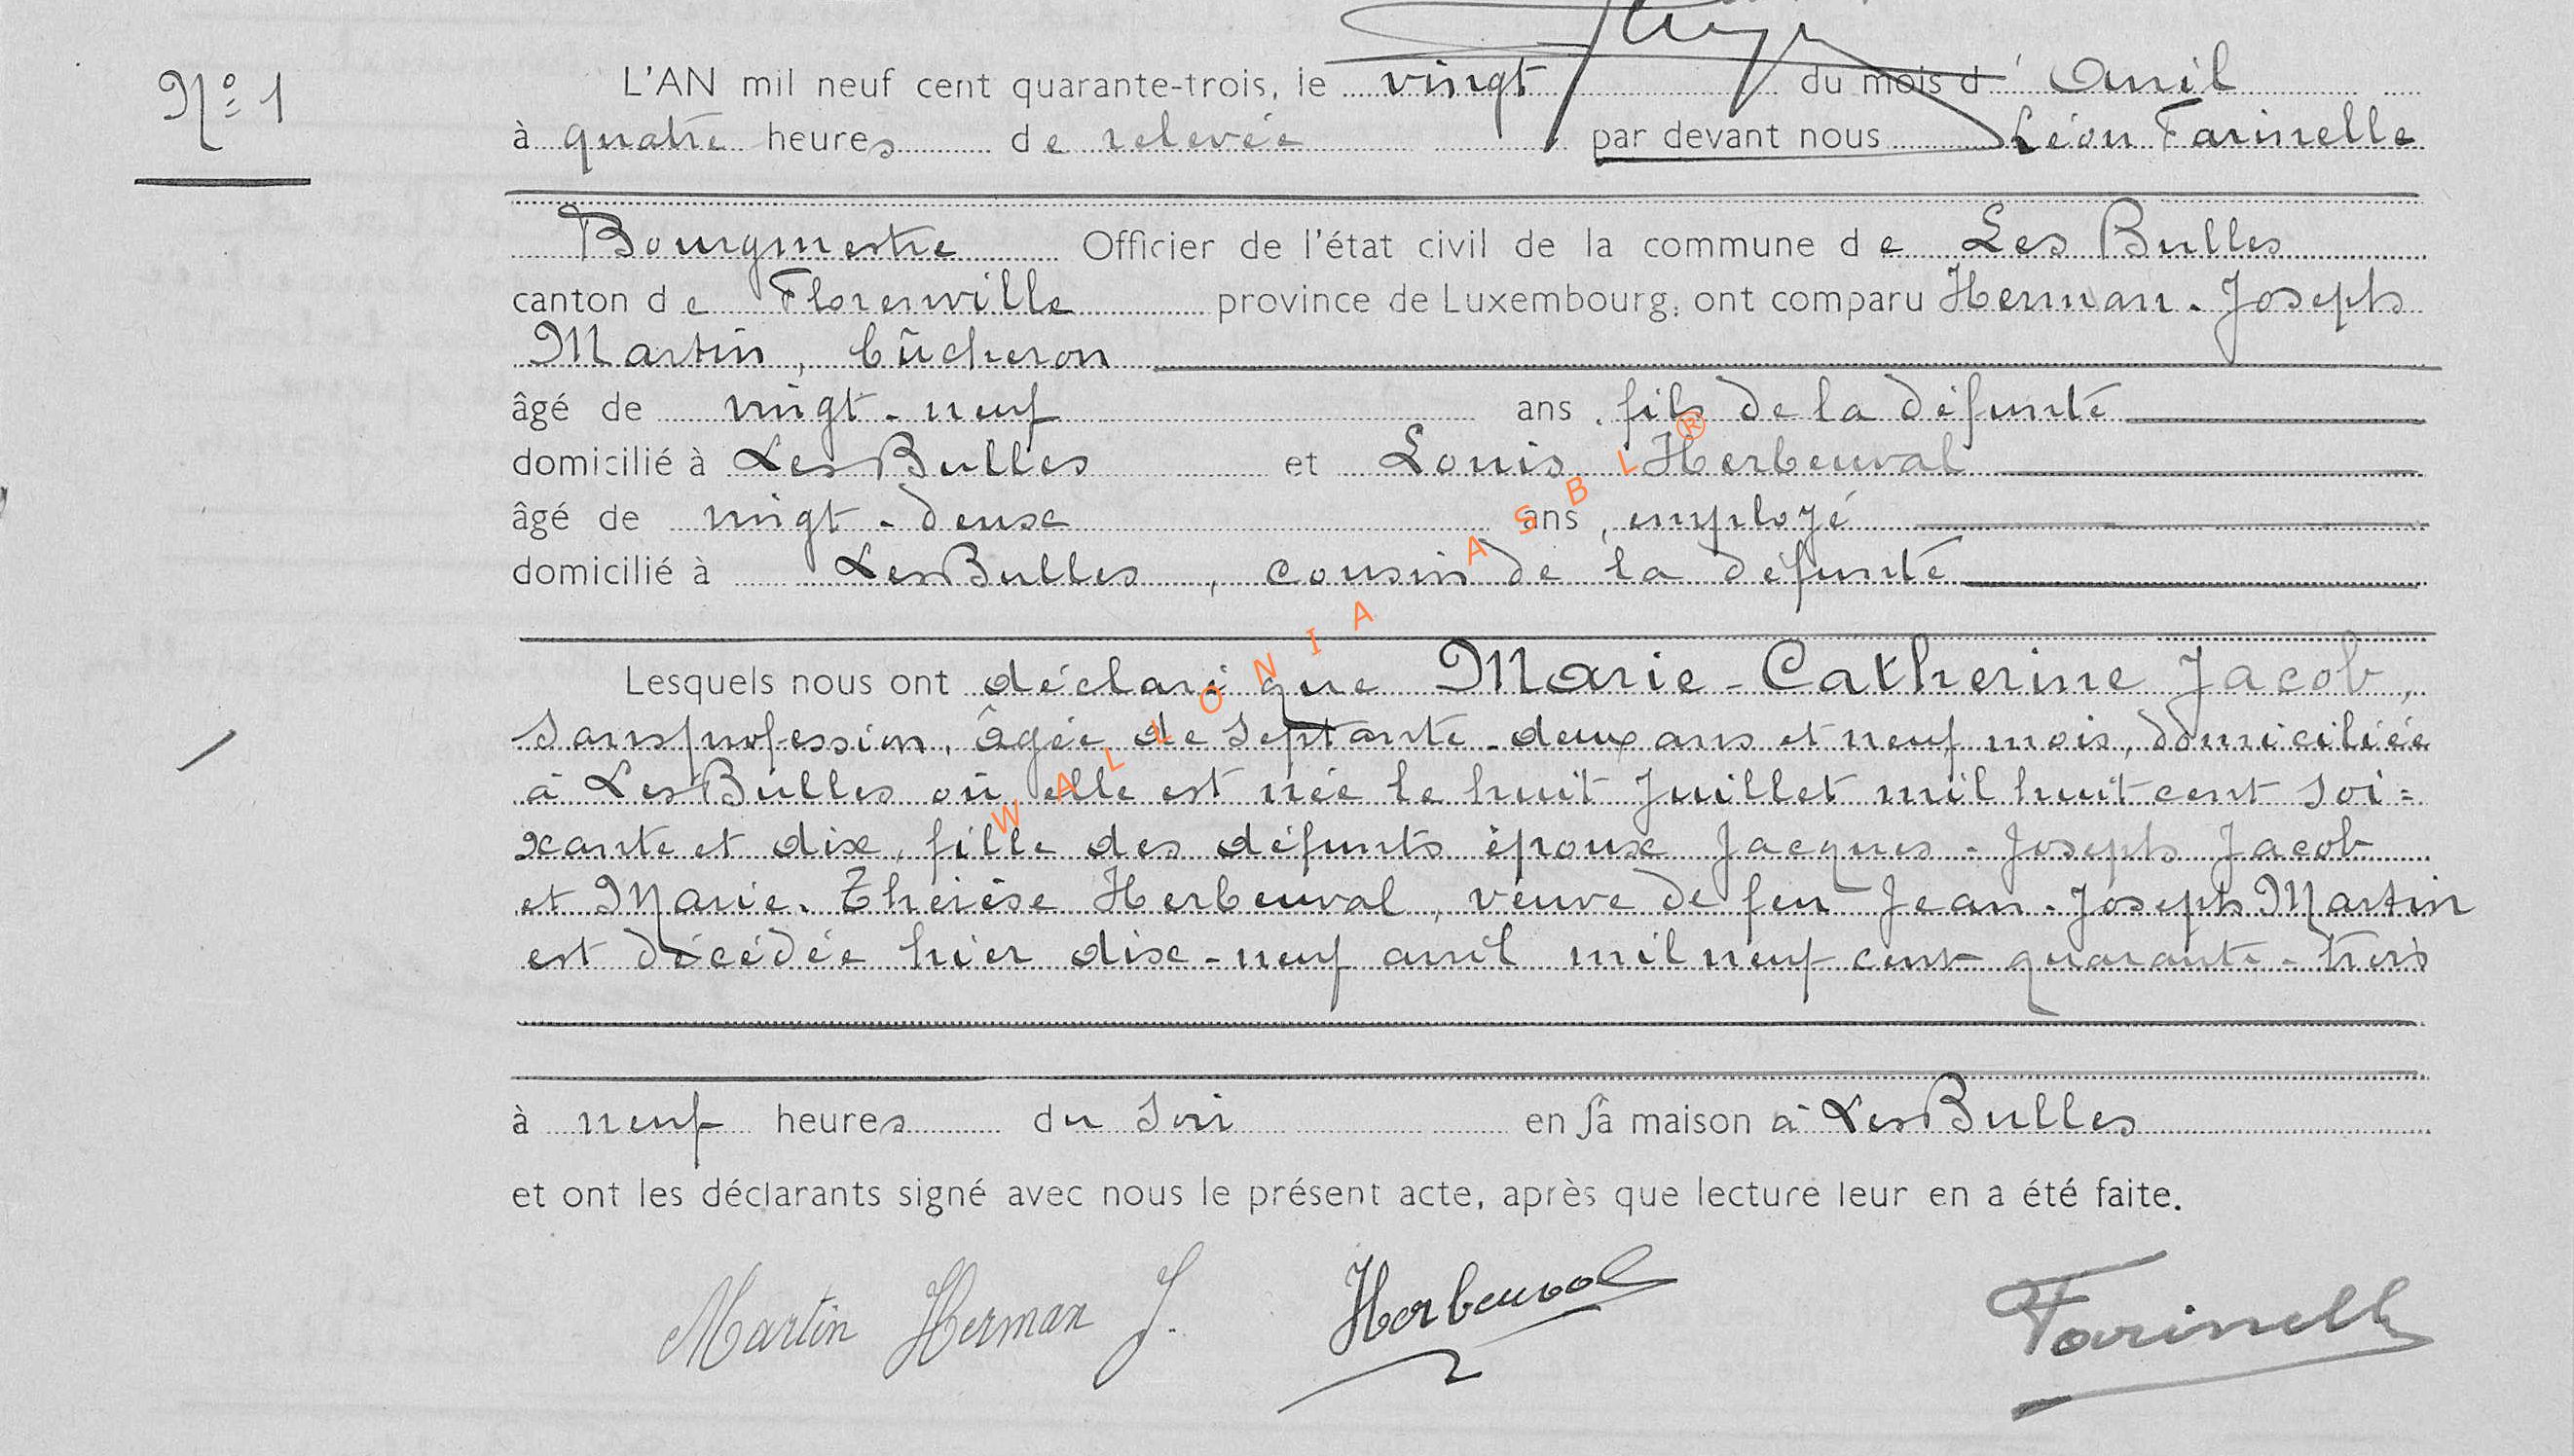 N° 1
L'AN mil neuf cent quarante-trois, le vingt du mois d' Avril
à quatre heures de relevée par devant nous Léon Farinelle
Bourgmestre Officier de l'état civil de la commune de Les Bulles
canton de Florenville province de Luxembourg, ont comparu Herman-Joseph
Martin, bûcheron
âgé de vingt-neuf ans, fils de la défunte
domicilié à Les Bulles et Louis Herbeuval
âgé de vingt-deux ans, employé
domicilié à Les Bulles, cousin de la défunte
Lesquels nous ont déclaré que Marie-Catherine Jacob,
sans profession, âgée de septante-deux ans et neuf mois, domiciliée
à Les Bulles où elle est née le huit Juillet mil huit cent soi=
xante et dix, fille des défunts époux Jacques-Joseph Jacob
et Marie-Thérèse Herbeuval, veuve de feu Jean-Joseph Martin
est décédée hier dix-neuf avril mil neuf cent quarante-trois
à neuf heures du soir en sa maison à Les Bulles
et ont les déclarants signé avec nous le présent acte, après que lecture leur en a été faite.
Martin Herman J. Herbeuval Farinelle
WALLONIA ASBL ®